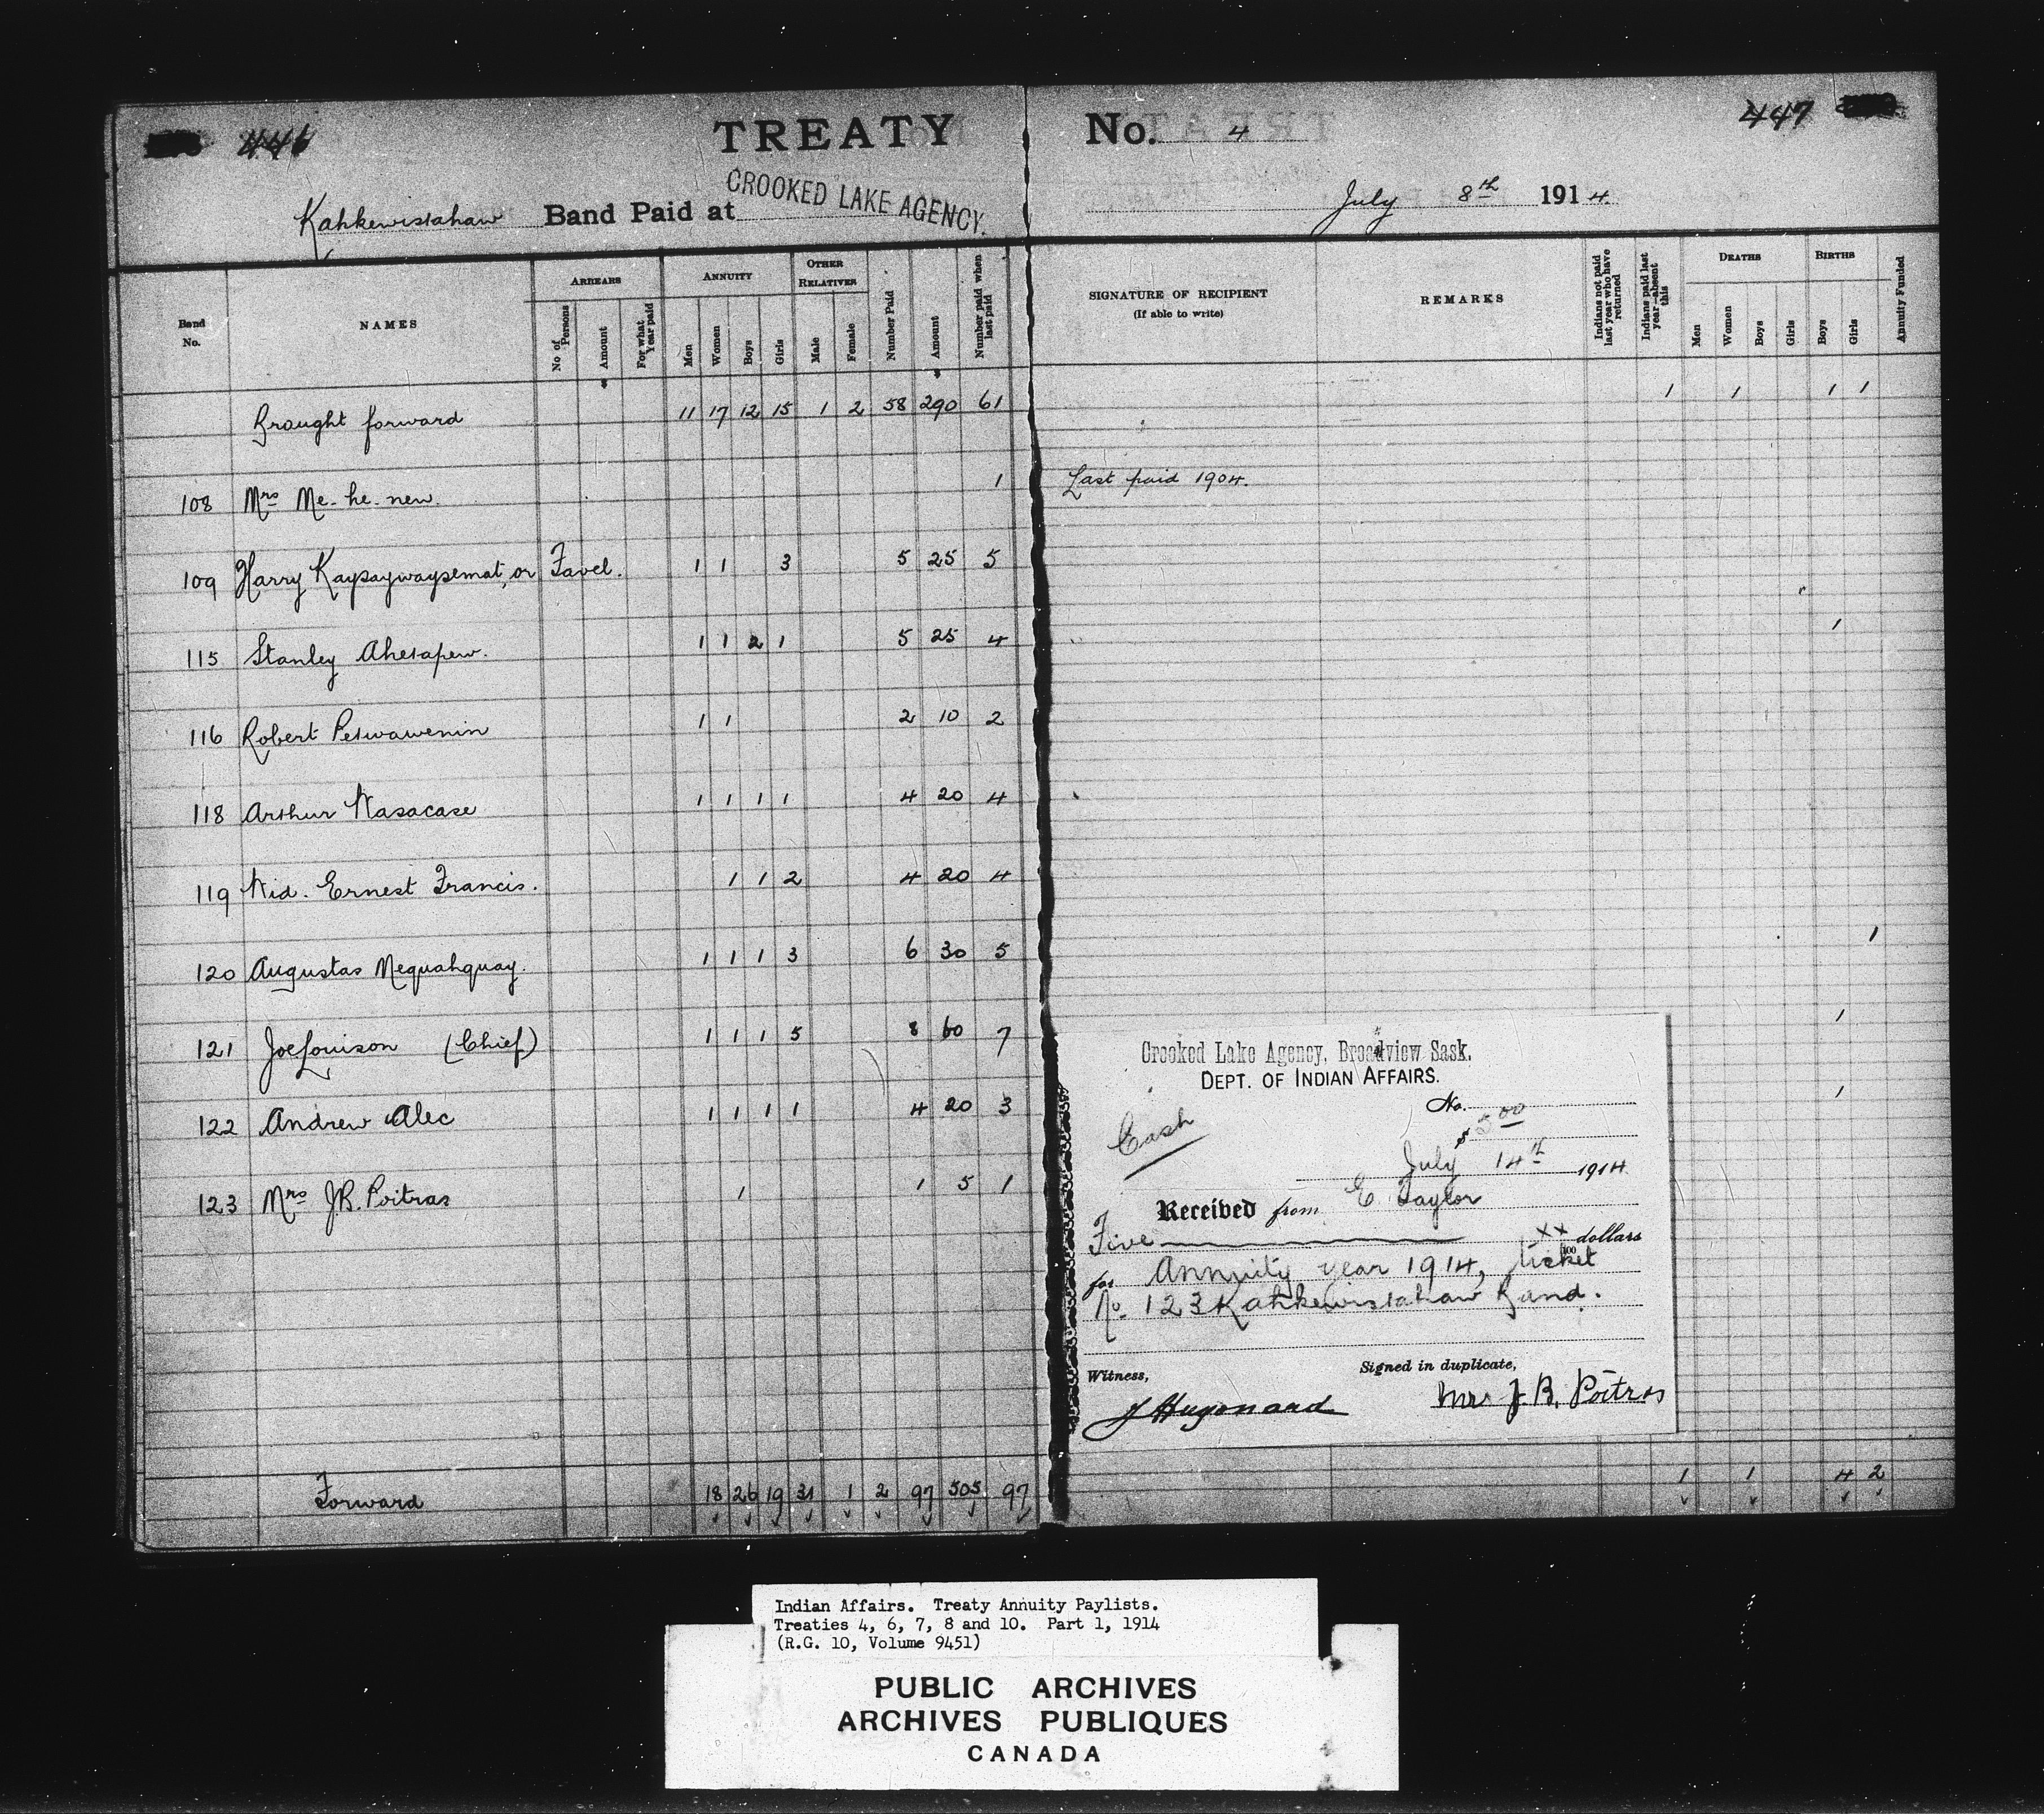 446 TREATY No. 4 447
Kahkewistahaw Band Paid at CROOKED LAKE AGENCY. July 8th 1914.
Band No. NAMES
ARREARS
No of Persons Amount For what Year paid
ANNUITY
Men Women Boys Girls
OTHER RELATIVES
Male Female
Number Paid Amount Number paid when last paid
SIGNATURE OF RECIPIENT (If able to write)
REMARKS
Indians not paid last year who have returned
Indians paid last year—absent this
DEATHS
Men Women Boys Girls
BIRTHS
Boys Girls
Annuity Funded
Brought forward 11 17 12 15 1 2 58 290 61 1 1 1 1
108 Mrs Me-he-new. 1 Last paid 1904.
109 Harry Kaysaywaysemat, or Favel. 1 1 3 5 25 5
115 Stanley Ahetapew. 1 1 2 1 5 25 4 1
116 Robert Petwawenin 1 1 2 10 2
118 Arthur Wasacase 1 1 1 1 4 20 4
119 Wid. Ernest Francis. 1 1 2 4 20 4
120 Augustas Nequahquay. 1 1 1 3 6 30 5 1
121 Joe Louison (Chief) 1 1 1 5 8 60 7 1
122 Andrew Alec 1 1 1 1 4 20 3 1
123 Mrs J.B. Poitras 1 1 5 1
Forward 18 26 19 31 1 2 97 505 97 1 1 4 2
Crooked Lake Agency, Broadview Sask.
DEPT. OF INDIAN AFFAIRS.
No.
Cash $ 5.00
July 14th 1914
Received from E. Taylor
Five xx/100 dollars
for Annuity year 1914, ticket
No. 123 Kahkewistahaw Band.
Witness, Signed in duplicate,
J Hugonard Mrs J. B. Poitras
Indian Affairs. Treaty Annuity Paylists.
Treaties 4, 6, 7, 8 and 10. Part 1, 1914
(R.G. 10, Volume 9451)
PUBLIC ARCHIVES
ARCHIVES PUBLIQUES
CANADA